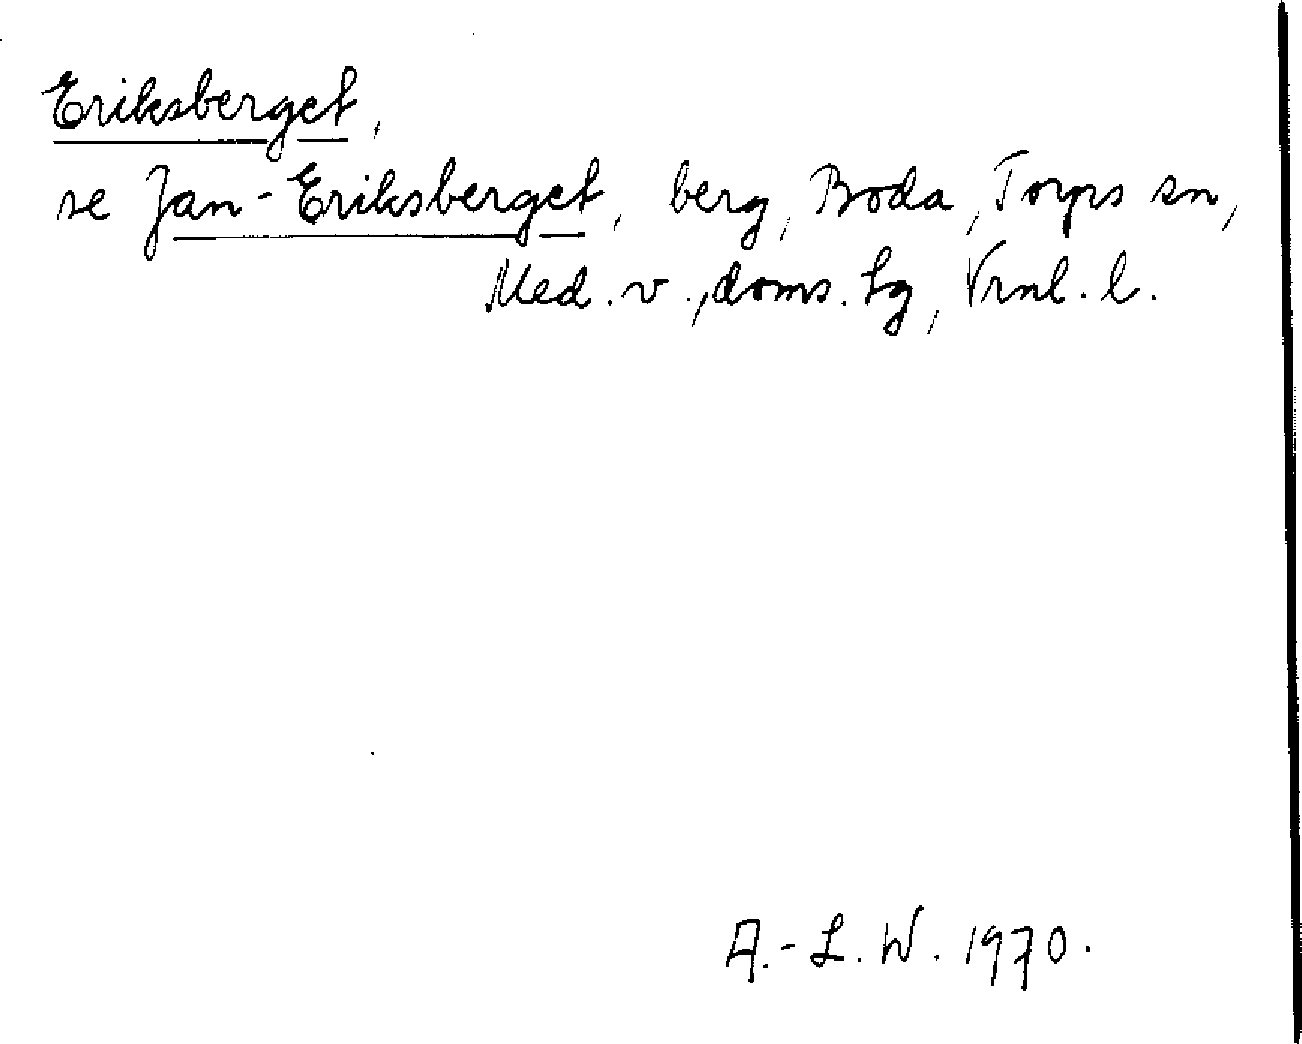 Eriksberget,
se Jan-Eriksberget, berg, Boda, Torps sn,
Med. v., doms. hg, Vrml. l.
A.-L. W. 1970.